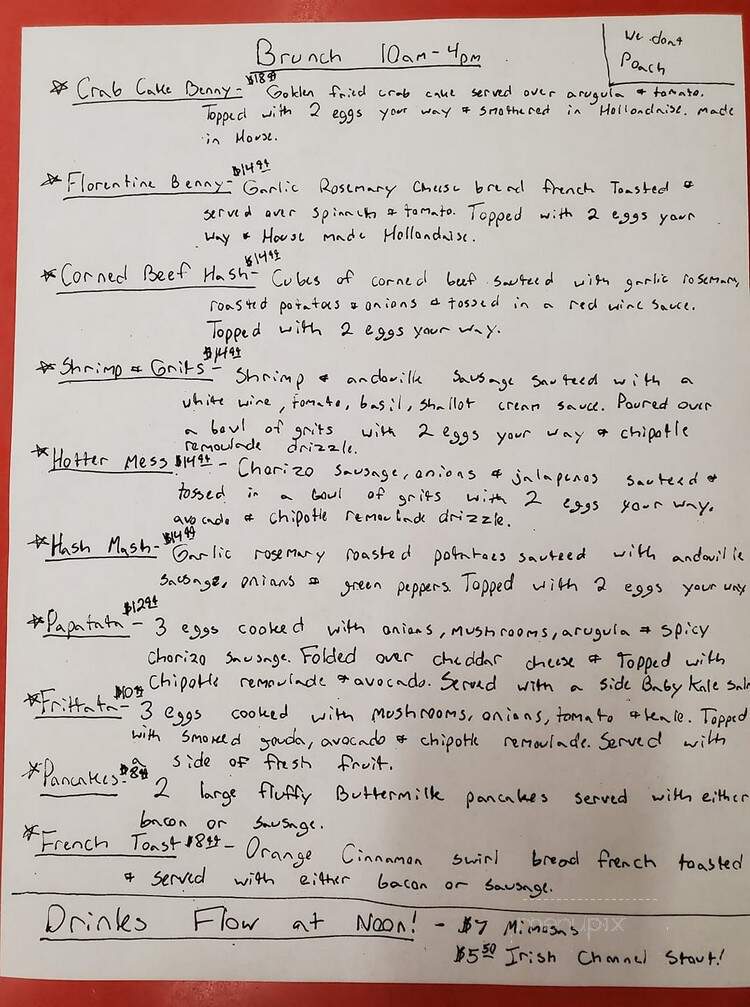 Brunch 10am-4pm
We dont
Poach
☆ Crab Cake Benny- $18⁹⁹ Golden fried crab cake served over arugula & tomato.
Topped with 2 eggs your way & smothered in Hollondaise. made
in House.
☆ Florentine Benny- $14⁹⁹ Garlic Rosemary Cheese bread french Toasted &
served over spinach & tomato. Topped with 2 eggs your
way & House made Hollondaise.
☆ Corned Beef Hash- $14⁹⁹ Cubes of corned beef sauteed with garlic rosemary
roasted potatoes & onions & tossed in a red wine sauce.
Topped with 2 eggs your way.
☆ Shrimp & Grits- $14⁹⁹ Shrimp & andouille sausage sauteed with a
white wine, tomato, basil, shallot cream sauce. Poured over
a bowl of grits with 2 eggs your way & chipotle
remoulade drizzle.
☆ Hotter Mess $14⁹⁹ - Chorizo sausage, onions & jalapenos sauteed &
tossed in a bowl of grits with 2 eggs your way.
avocado & chipotle remoulade drizzle.
☆ Hash Mash- $14⁹⁹ Garlic rosemary roasted potatoes sauteed with andouille
sausage, onions & green peppers. Topped with 2 eggs your way
☆ Papatata $12⁹⁹ - 3 eggs cooked with onions, mushrooms, arugula & spicy
Chorizo sausage. Folded over cheddar cheese & Topped with
Chipotle remoulade & avocado. Served with a side Baby Kale Sala
☆ Frittata- $10⁹⁹ 3 eggs cooked with mushrooms, onions, tomato & kale. Topped
with smoked gouda, avocado & chipotle remoulade. Served with
a side of fresh fruit.
☆ Pancakes- $8⁹⁹ 2 large fluffy Buttermilk pancakes served with either
bacon or sausage.
☆ French Toast $8⁹⁹ - Orange Cinnamon swirl bread french toasted
& served with either bacon or sausage.
Drinks Flow at Noon! - $7 Mimosas
$5⁵⁰ Irish Channel Stout!